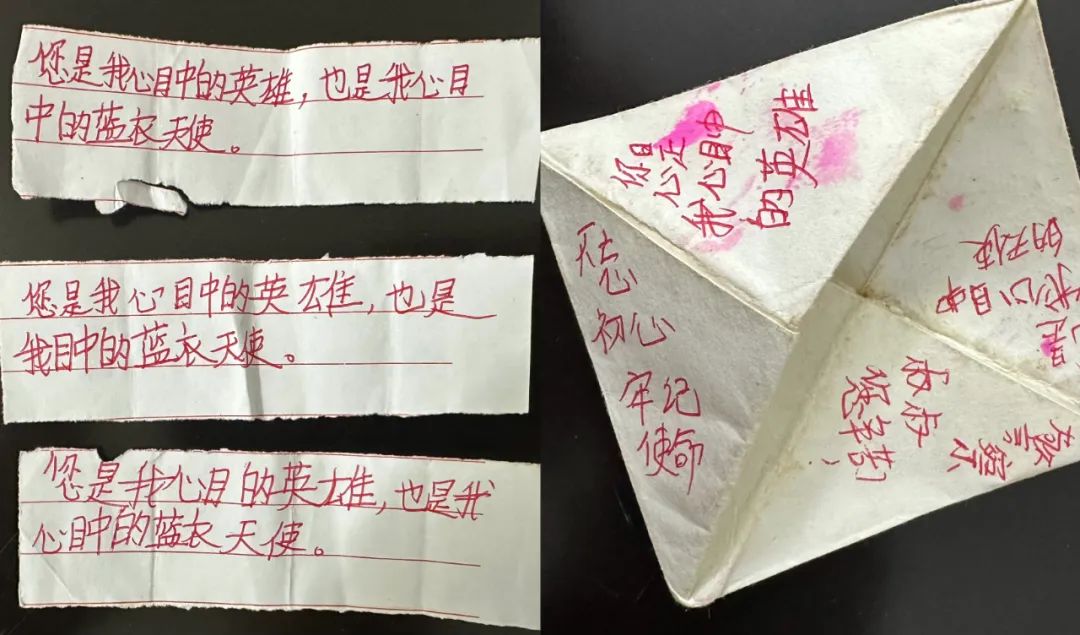 您是我心目中的英雄，也是我心目
中的蓝衣天使。
您是我心目中的英雄，也是
我目中的蓝衣天使。
您是我心目的英雄，也是我
心目中的蓝衣天使。
我心目中
的英雄
不忘
初心
牢记
使命
心目中
的天使
叔叔
您辛苦
警察